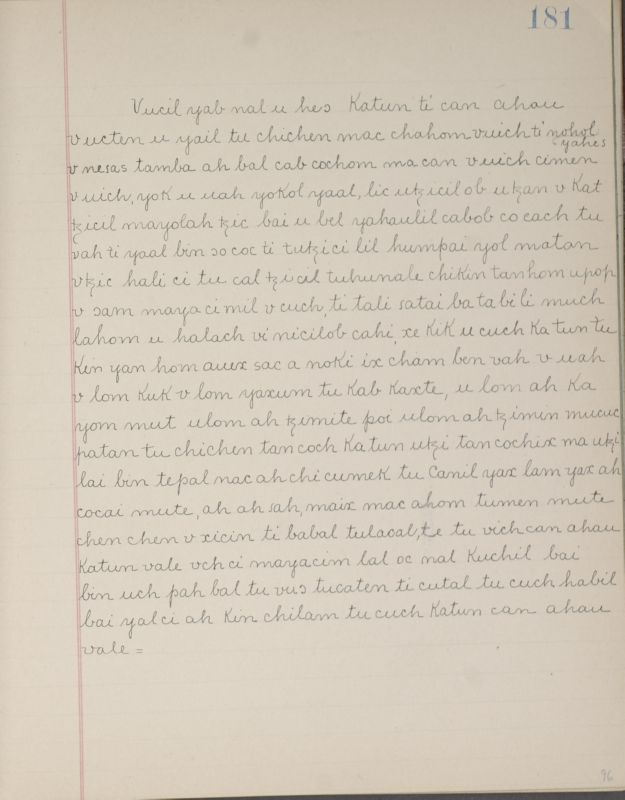 181
Vucil yab nal u hes Katun ti can ahau
vucten u yail tu chichen mac chahom vuich ti nohol
yahes
v nesas tamba ah bal cab cochom ma can vuich cimen
vuich, yok u uah yokol yaal, lic utzicil ob utzan v Kat
tzicil mayolah tzic bai u bel yahaulil cabob co cach tu
vah ti yaal bin ɔo coc ti tutzi ci lil humpai yol matan
vtzic hali ci tu cal tzicil tuhunale chikin tanhom upop
v ɔam mayacimil v cuch, ti tali satai ba ta bi li much
lahom u halach vi nicilob cahi, xe Kik u cuch Ka tun tu
Kin yan hom auex sac a noki ix cham ben vah v uah
v lom Kuk v lom yaxum tu Kab Kaxte, u lom ah Ka
yom mut ulom ah tzimite poi ulom ah tzimin mucuc
patan tu chichen tan coch Katun utzi tan cochix ma utzi
lai bin tepal nac ah chi cumek tu Canil yax lam yax ah
cocai mute, ah ah sah, maix mac ahom tumen mute
chen chen v xicin ti babal tulacal, te tu vich can ahau
Katun vale vch ci mayacim lal oc nal Kuchil bai
bin uch pah bal tu vuɔ tucaten ti cutal tu cuch habil
bai yalci ah Kin chilam tu cuch Katun can ahau
vale =
96